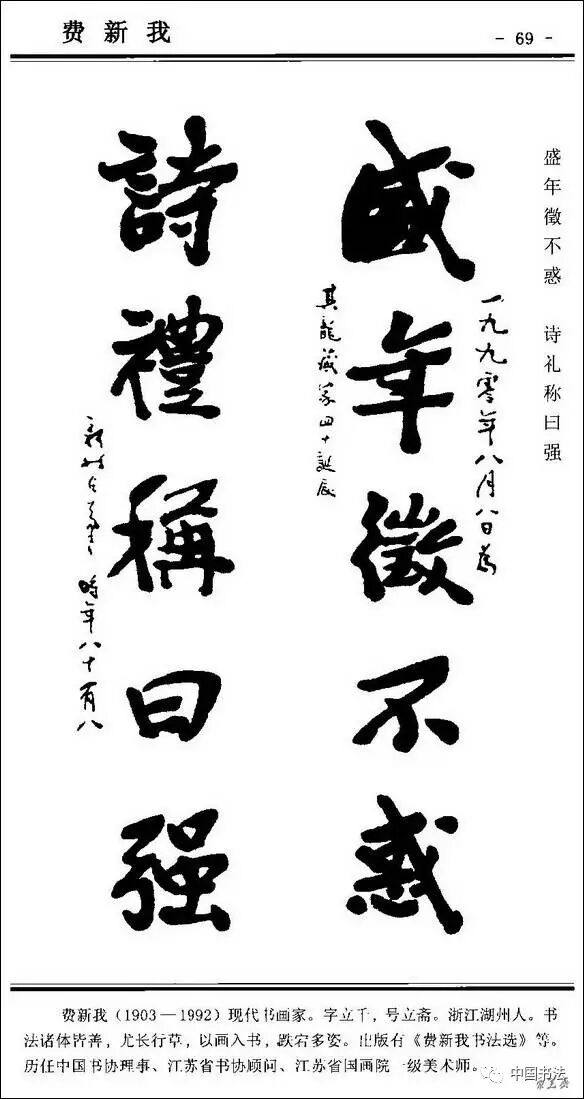 费新我
- 69 -
盛年徵不惑 诗礼称曰强
一九九零年八月八日为
盛年徵不惑
其龙藏家四十诞辰
詩禮稱曰强
時年八十有八
费新我(1903—1992)现代书画家。字立千,号立斋。浙江湖州人。书
法诸体皆善,尤长行草,以画入书,跌宕多姿。出版有《费新我书法选》等。
历任中国书协理事、江苏省书协顾问、江苏省国画院一级美术师。
中国书法